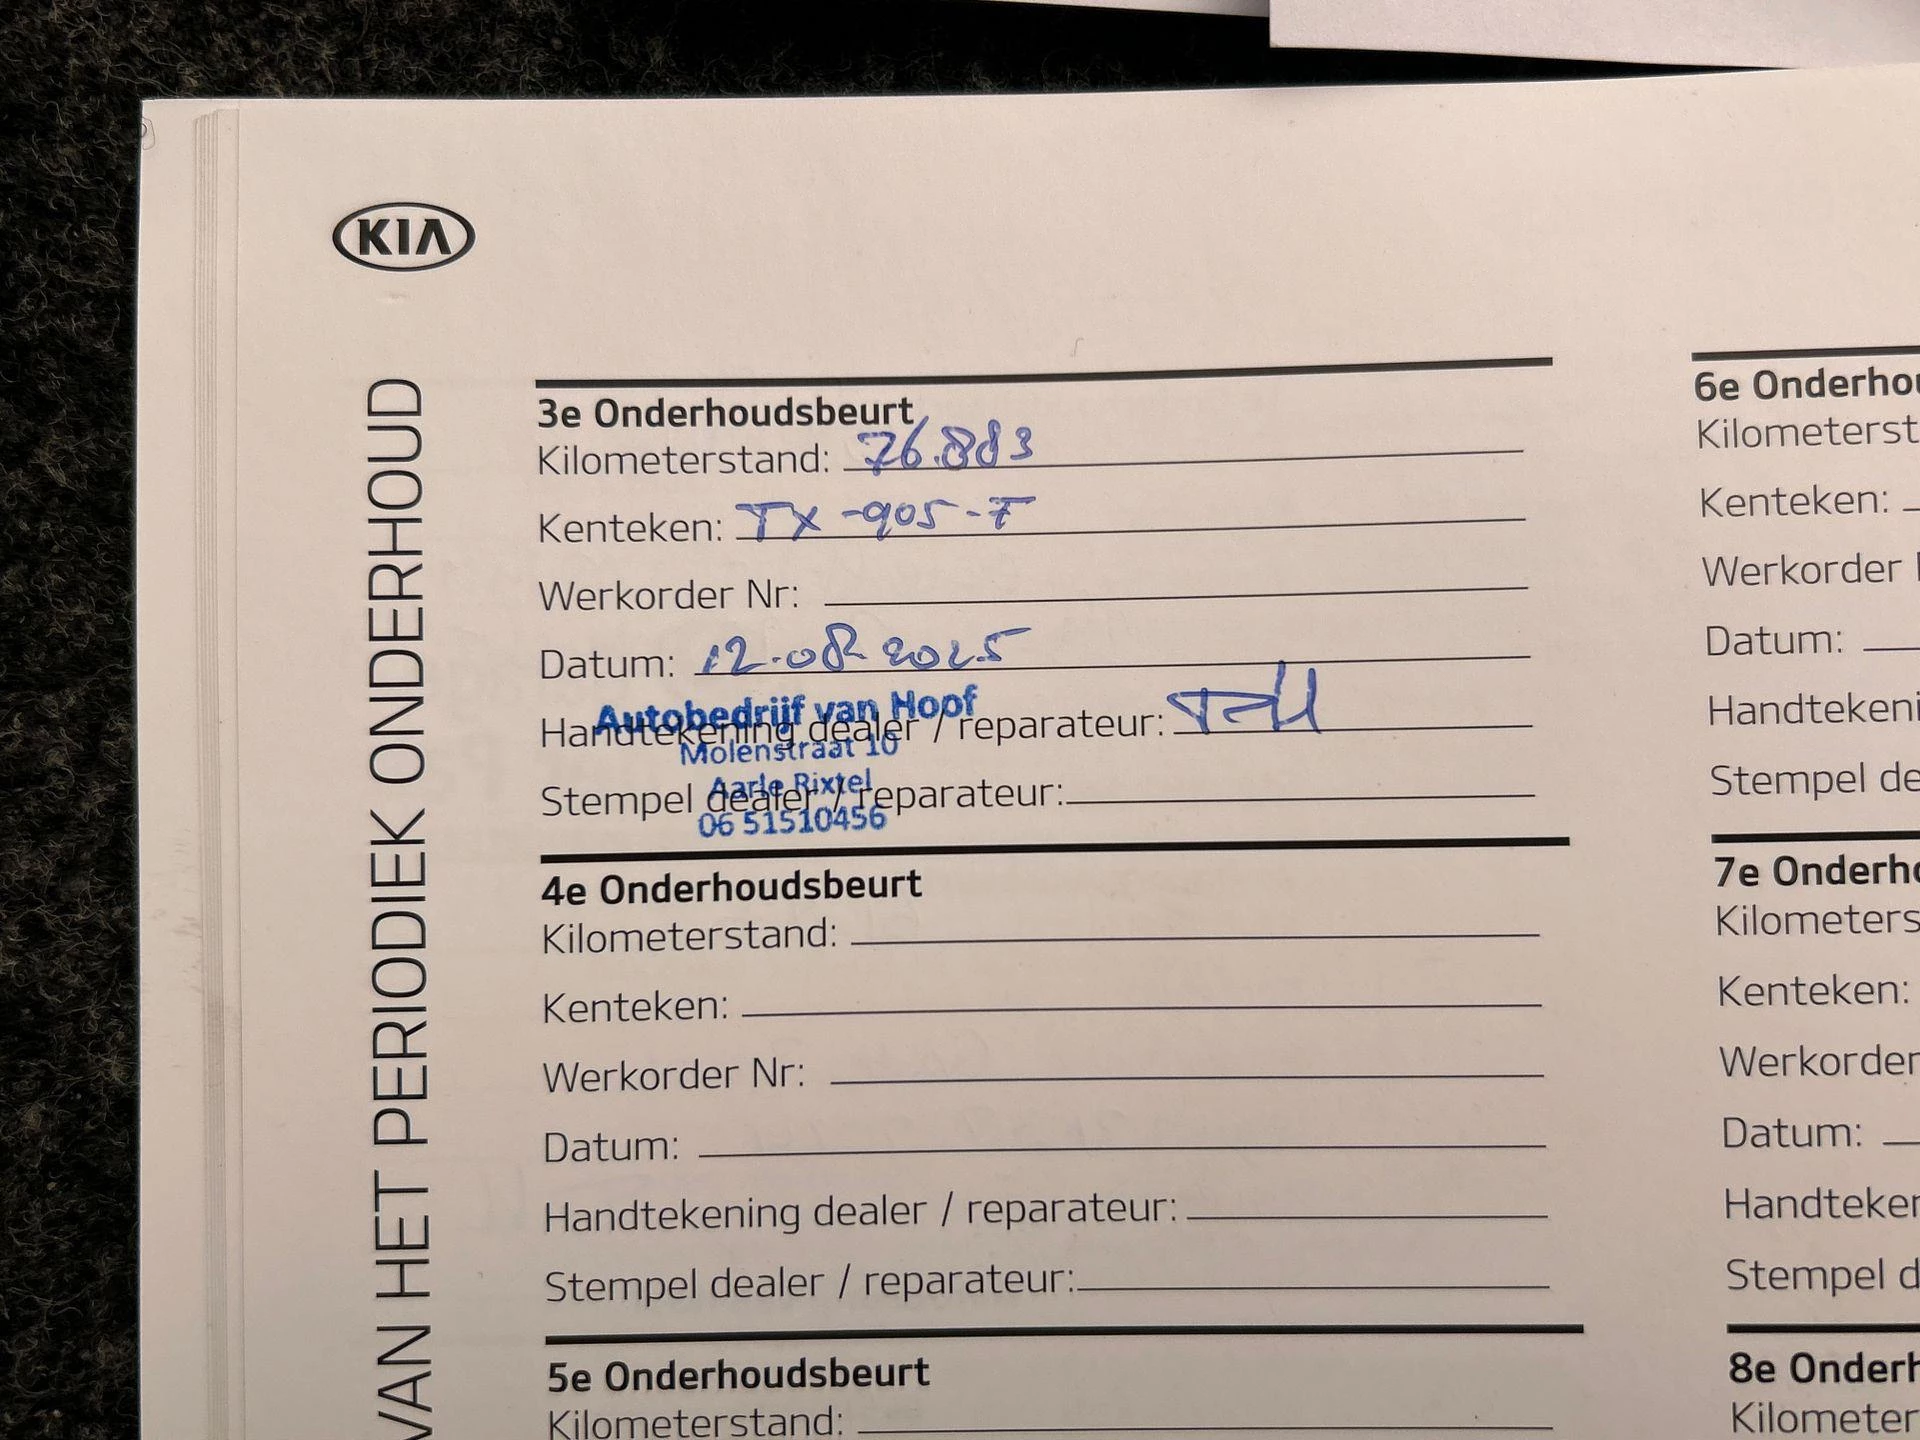 KIA
VAN HET PERIODIEK ONDERHOUD
3e Onderhoudsbeurt
Kilometerstand: 76.883
Kenteken: TX-905-F
Werkorder Nr:
Datum: 12.08 2025
Handtekening dealer / reparateur:
Stempel dealer / reparateur:
Autobedrijf van Hoof
Molenstraat 10
Aarle Rixtel
06 51510456
4e Onderhoudsbeurt
Kilometerstand:
Kenteken:
Werkorder Nr:
Datum:
Handtekening dealer / reparateur:
Stempel dealer / reparateur:
5e Onderhoudsbeurt
Kilometerstand:
6e Onderhou
Kilometerst
Kenteken:
Werkorder
Datum:
Handtekeni
Stempel de
7e Onderho
Kilometers
Kenteken:
Werkorder
Datum:
Handteken
Stempel d
8e Onderh
Kilometer